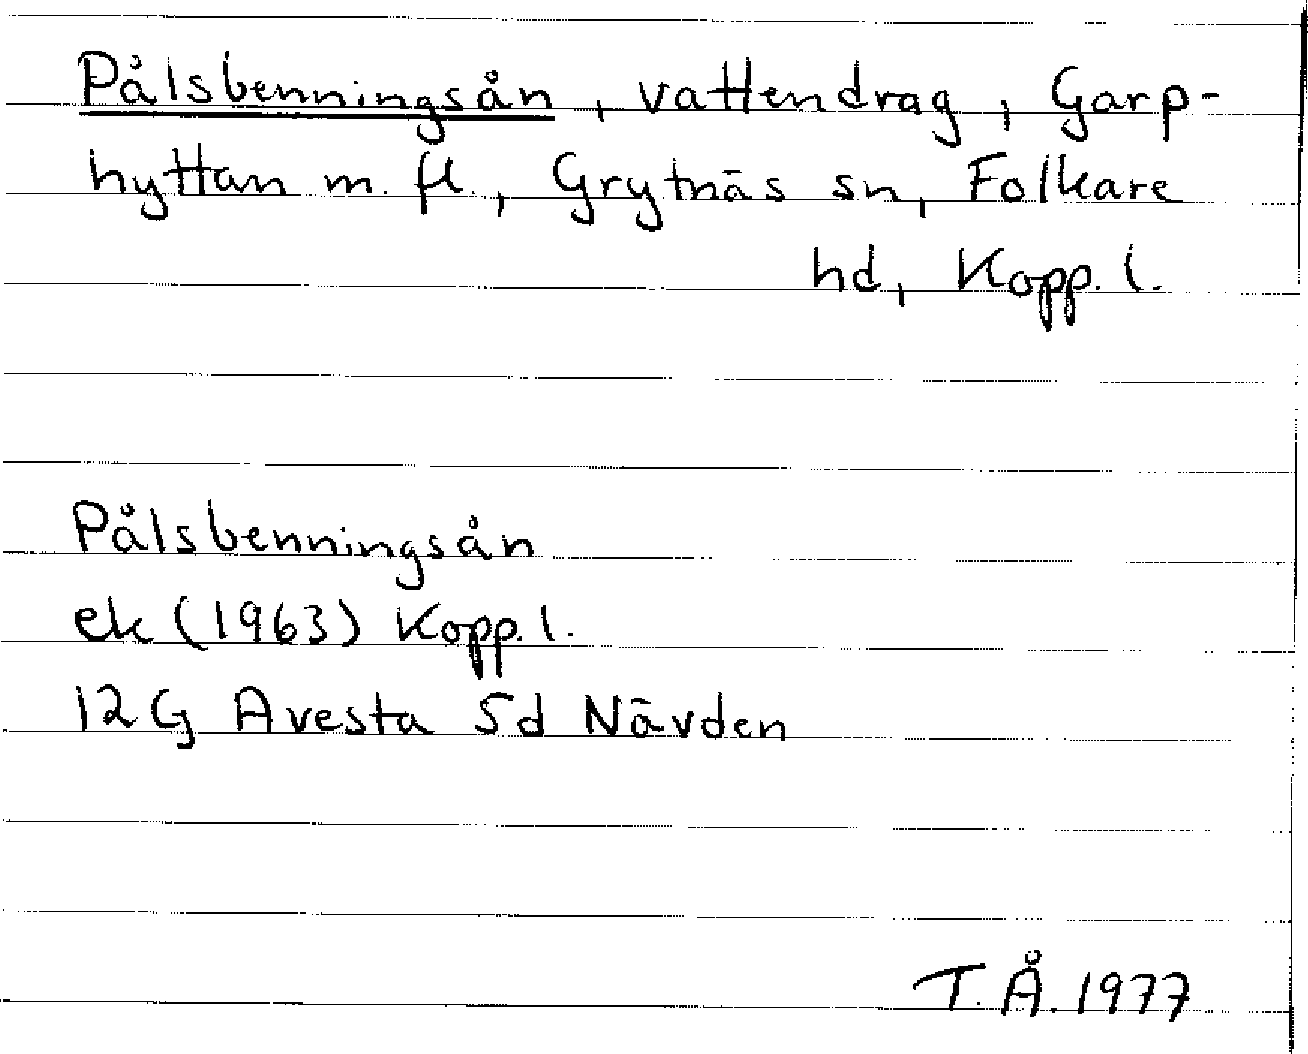 Pålsbenningsån, vattendrag, Garp-
hyttan m. fl., Grytnäs sn, Folkare
hd, Kopp. l.
Pålsbenningsån
ek (1963) Kopp. l.
12G Avesta 5d Nävden
T.Å. 1977